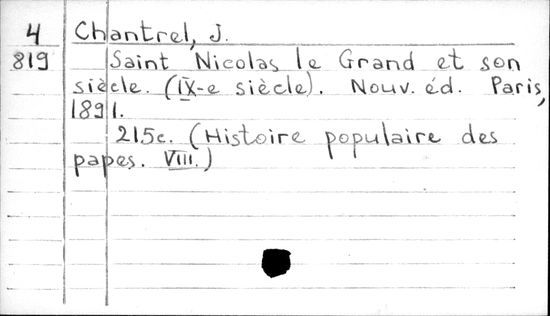 4 Chantrel, J.
819 Saint Nicolas le Grand et son
siècle. (IX-e siècle). Nouv. éd. Paris,
1891.
215c. (Histoire populaire des
papes. VIII.)